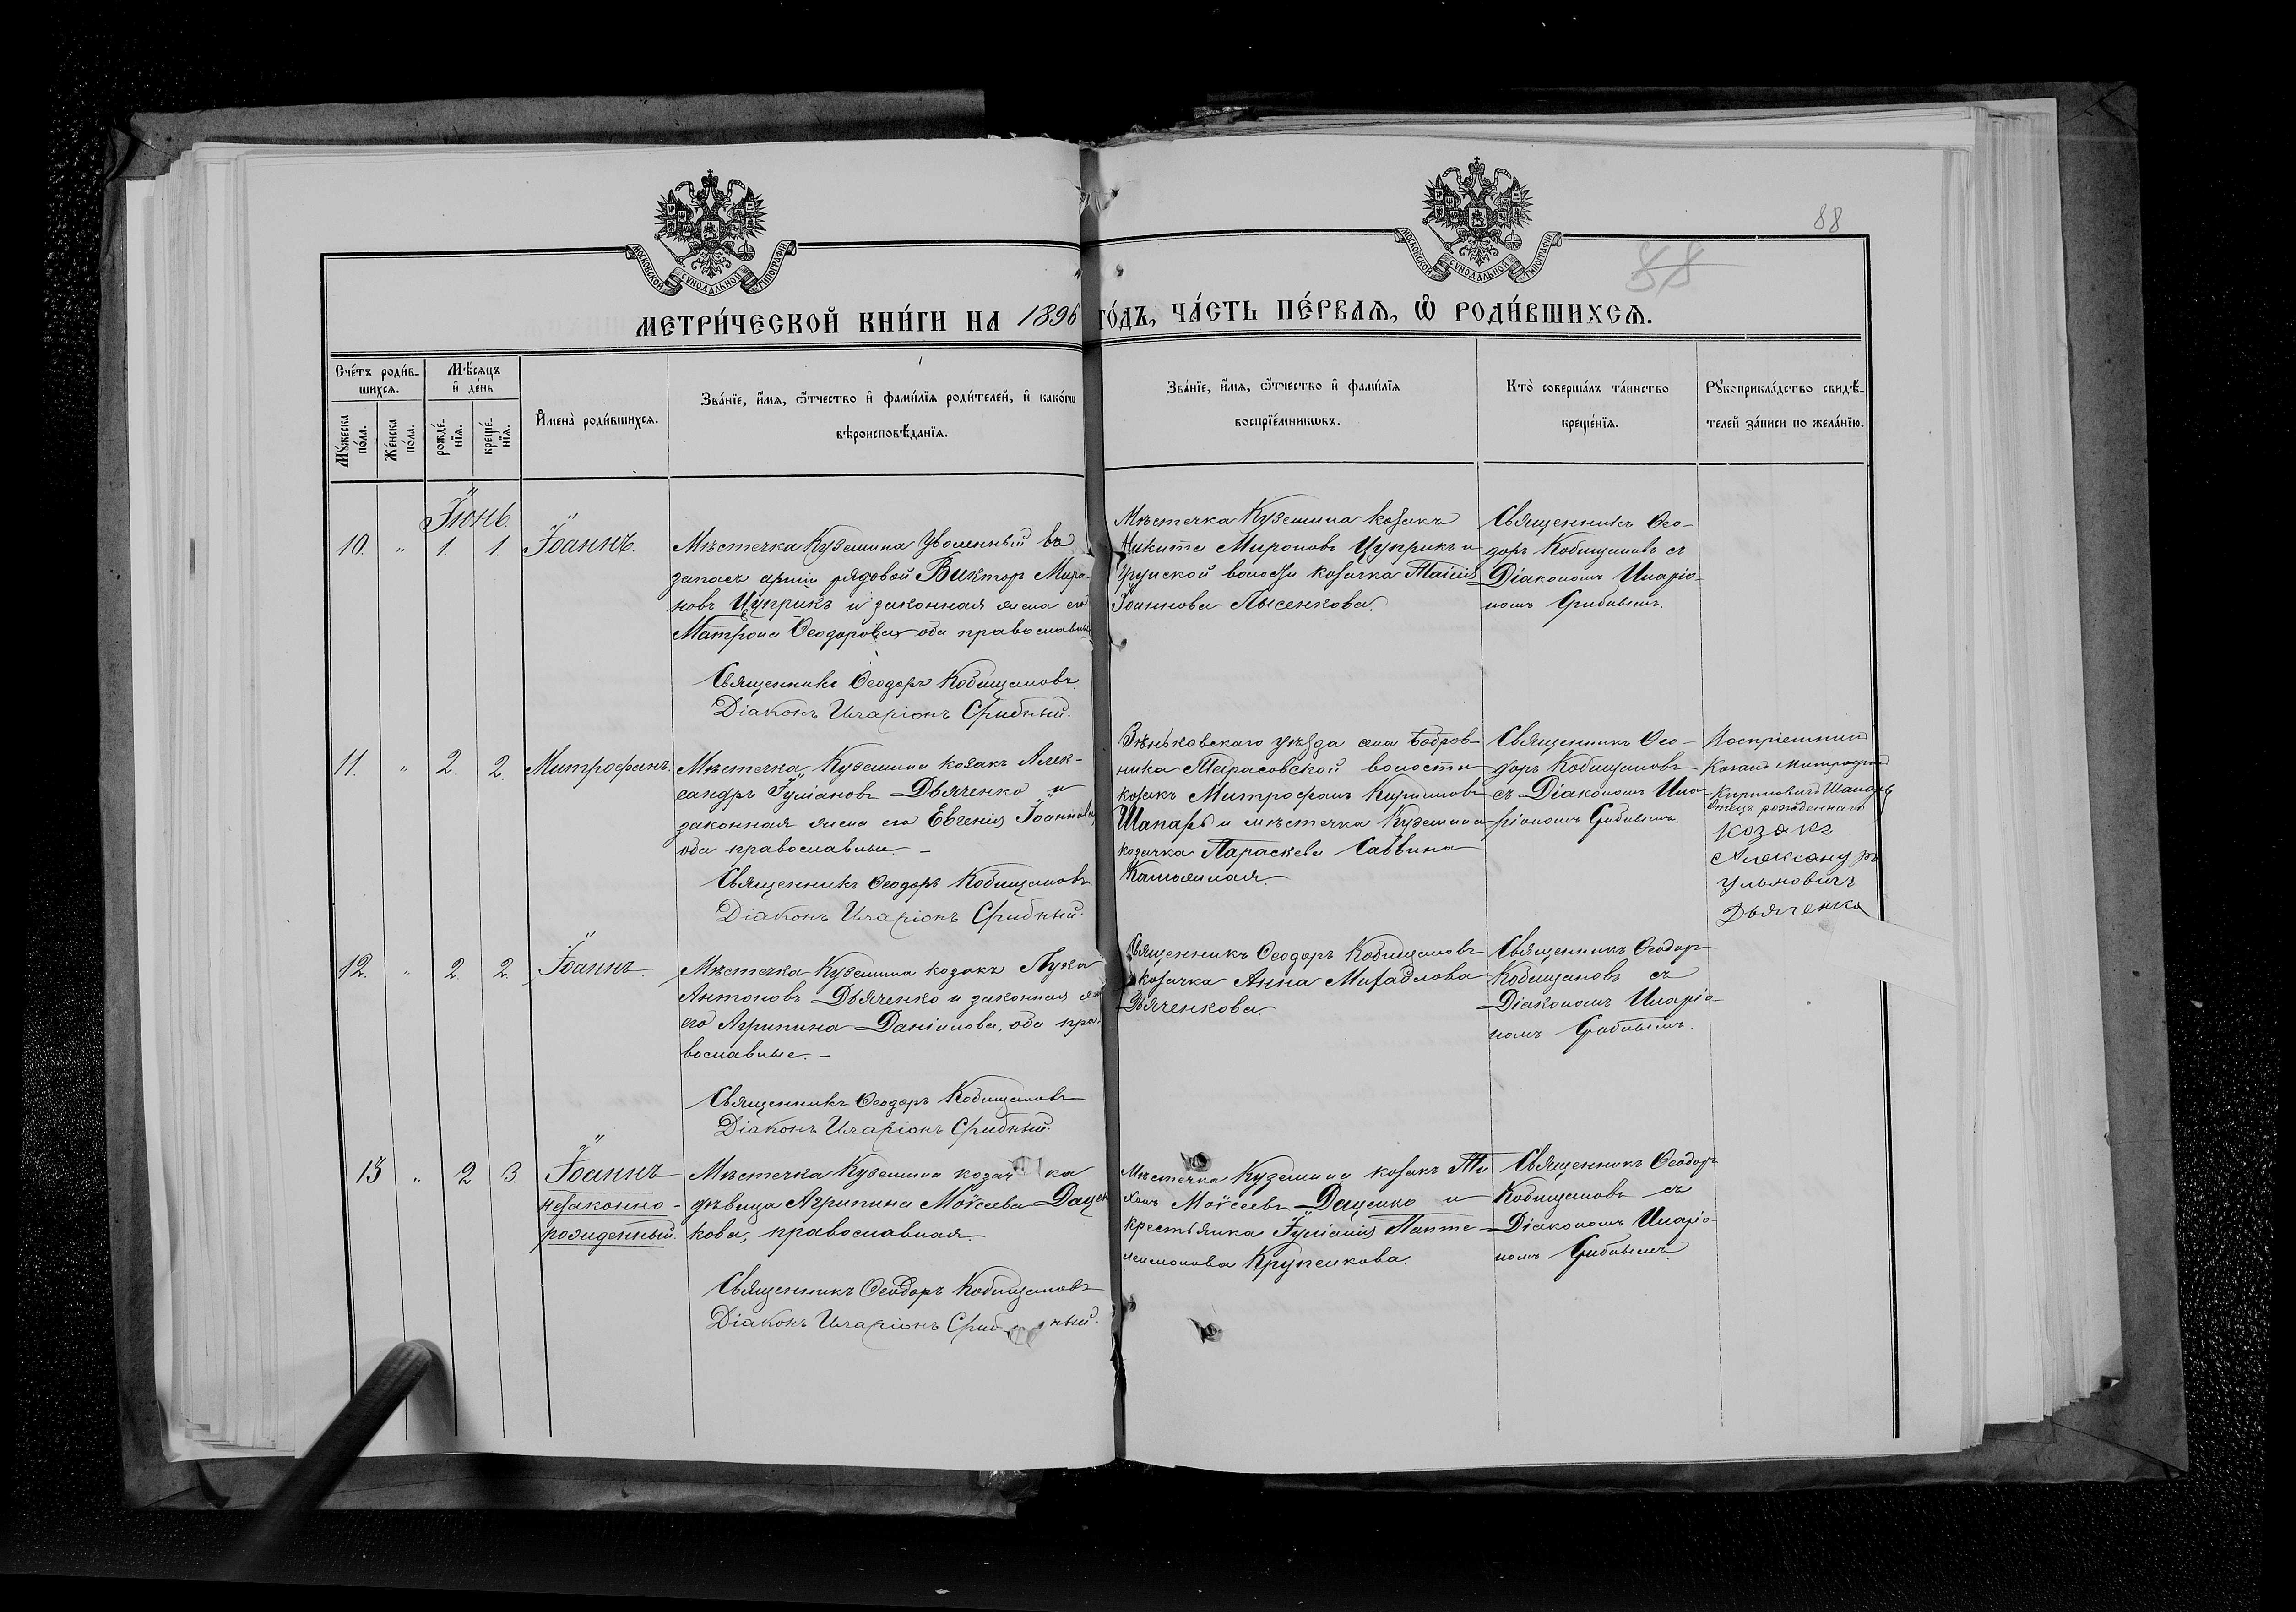 88
88
МОСКОВСКОЙ СѴНОДАЛЬНОЙ ТИПОГРАФІИ
МОСКОВСКОЙ СѴНОДАЛЬНОЙ ТИПОГРАФІИ
МЕТРИ́ЧЕСКОЙ КНИ́ГИ НА 1896 ГО́ДЪ, ЧА́СТЬ ПЕ́РВАЯ, Ѡ РОДИ́ВШИХСЯ.
Сче́тъ роди́в-
шихся.
Мѣ́сяцъ
и де́нь
Мꙋ́жеска по́ла.
Же́нска по́ла.
рожде́-
нїя.
креще́-
нїя.
Имена̀ роди́вшихся.
Зва́нїе, и́мя, ѻ́тчество и фами́лїя роди́телей, и како́гѡ
вѣроисповѣ́данїя.
Зва́нїе, и́мя, ѻ́тчество и фами́лїя
воспрїе́мникѡвъ.
Кто̀ соверша́лъ та́инство
креще́нїя.
Рꙋкоприкла́дство свидѣ́-
телей за́писи по жела́нїю.
Іюнь.
10. " 1. 1. Іоаннъ.
Мѣстечка Куземина уволенный въ
запасъ арміи рядовой Виктор Миро-
новъ Цуприкъ и законная жена его
Матрона Ѳеодорова, оба православные
Священникъ Ѳеодоръ Кобищановъ.
Діаконъ Иларіонъ Срибный.
Мѣстечка Куземина козакъ
Никита Мироновъ Цуприкъ и
Грунской волости козачка Таисія
Іоаннова Лысенкова.
Священникъ Ѳео-
доръ Кобищановъ съ
Діакономъ Иларіо-
номъ Срибнымъ.
11. " 2. 2. Митрофанъ.
Мѣстечка Куземина козакъ Алек-
сандръ Іуліановъ Дьяченко и
законная жена его Евгенія Іоаннова,
оба православные. –
Священникъ Ѳеодоръ Кобищановъ
Діаконъ Иларіонъ Срибный.
Зѣньковскаго уѣзда села Бобров-
ника Тарасовской волости
козакъ Митрофанъ Кирилловъ
Шапаръ и мѣстечка Куземина
козачка Параскева Саввина
Священникъ Ѳео-
доръ Кобищановъ
съ Діакономъ Ила-
ріономъ Срибнымъ.
Воспріемникъ
Козакъ Митрофанъ
Кириловичъ Шапаръ
Отецъ рожденнаго
козакъ
Александръ
Ульяновичъ
Дьяченко
12. " 2. 2. Іоаннъ
Мѣстечка Куземина козакъ Лука
Антоновъ Дьяченко и законная жена
его Агрипина Даніилова, оба пра-
вославные. –
Священникъ Ѳеодоръ Кобищановъ
Діаконъ Иларіонъ Срибный.
Священникъ Ѳеодоръ Кобищановъ
и козачка Анна Михайлова
Дьяченкова.
Священникъ Ѳеодоръ
Кобищановъ съ
Діакономъ Иларіо-
номъ Срибнымъ.
13 " 2 3. Іоаннъ
незаконно-
рожденный.
Мѣстечка Куземина козачка
дѣвица Агрипина Моѵсеева Дацен
кова, православная.
Священникъ Ѳеодоръ Кобищановъ
Діаконъ Иларіонъ Срибный.
Мѣстечка Куземина козакъ Ти
хонъ Моѵсеевъ Даценко и
крестьянка Іуліанія Панте-
леимонова Крупенкова.
Священникъ Ѳеодоръ
Кобищановъ съ
Діакономъ Иларіо-
номъ Срибнымъ.